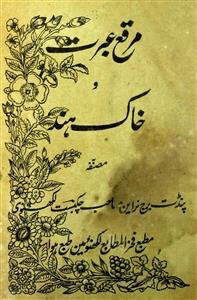 مرقع عبرت
و
خاک ہند
مصنفہ
پنڈت برج نراین صاحب چکبست لکھنوی
مطبع فخر المطابع لکھنؤ میں طبع ہوا